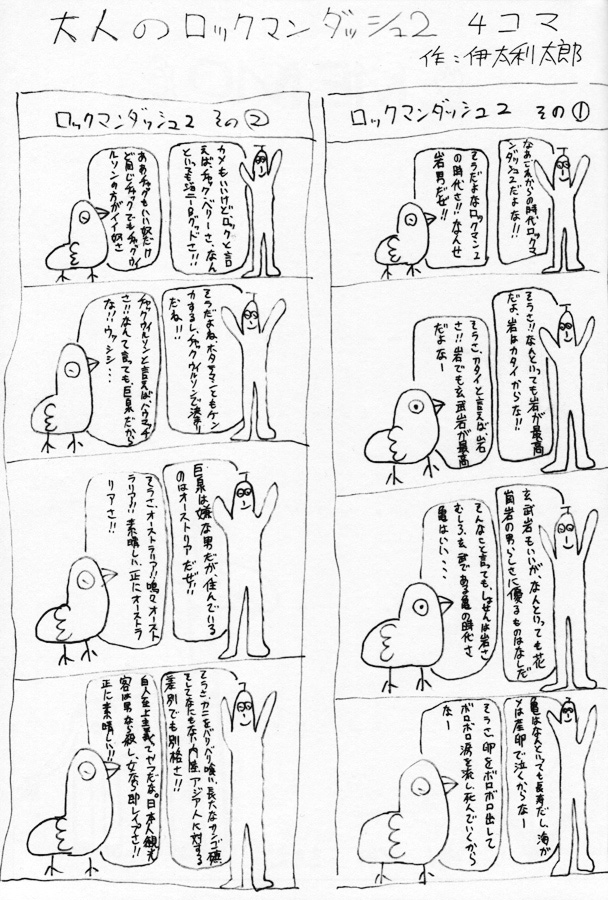 大人のロックマンダッシュ2 4コマ
作:伊太利太郎
ロックマンダッシュ2 その①
なあこれからの時代ロックマ
ンダッシュ2だよな!!
そうだよなロックマン2
の時代さ!!なんせ
岩男だぜ!!
そうさ!!なんといっても岩が最高
だよ、岩はカタイからな!!
そうさ、カタイと言えば岩
さ!!岩でも玄武岩が最高
だよなー
玄武岩もいいが、なんといっても花
崗岩の男らしさに優るものはなしだ
そんなこと言っても、しょせんは岩さ
むしろ、玄武である亀の時代さ
亀はいい、、、
亀はなんといっても長寿だし、海が
メは産卵で泣くからなー
そうさ、卵をボロボロ出して
ボロボロ涙を流し死んでいくから
なー
ロックマンダッシュ2 その②
カメもいいけどロックと言
えばチャック・ベリーさ、なん
といっても
ああチャックもいい奴だけ
ど同じチャックでもチャックウィ
ルソンの方がイイ奴さ
そうだよね、ホタテマンともケン
カするし、チャックウィルソンで決まり
だね!!
チャックウィルソンと言えば、
さ!!なんて言っても巨泉だから
な!!ウッシシ・・・
巨泉は嫌な男だが住んでいる
のはオーストリアだぜ!!
そうさ、オーストラリア!!嗚々オースト
ラリア!!素晴しい、正にオーストラ
リアさ!!
そうさ、カニをバリバリ喰い、長大なサンゴ礁
そしてなにもない内陸、アジア人に対する
差別でも別格さ!!
白人至上主義でヤツだな。日本人観光
客は男なら殺し、女なら即しイプさ!!
正に素晴しい!!